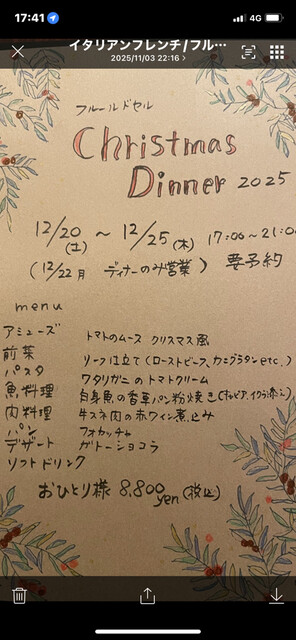 17:41
4G
イタリアンフレンチ/フル…
2025/11/03 22:16
フルールドセル
Christmas
Dinner 2025
12/20(土) ~ 12/25(木) 17:00~21:0
(12/22月 ディナーのみ営業) 要予約
menu
アミューズ トマトのムース クリスマス風
前菜 リース仕立て(ローストビーフ、カニグラタン etc.)
パスタ ワタリガニのトマトクリーム
魚料理 白身魚の香草パン粉焼き(キャビア、イクラ添え)
肉料理 牛スネ肉の赤ワイン煮込み
パン フォカッチャ
デザート ガトーショコラ
ソフトドリンク
おひとり様 8,800yen(税込)